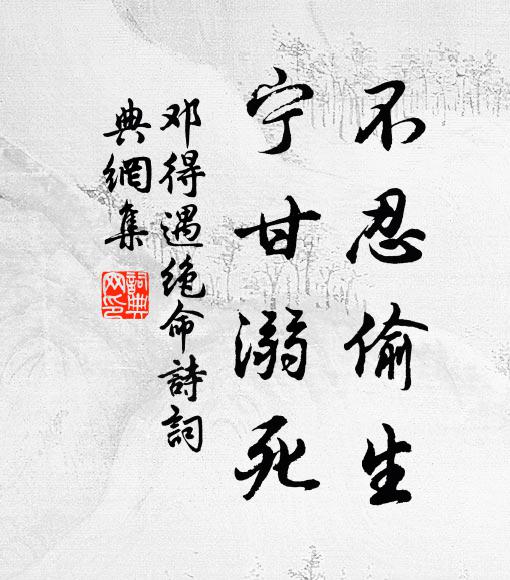 不忍偷生
宁甘溺死
邓得遇绝命詩詞
典網集
詞典
网印